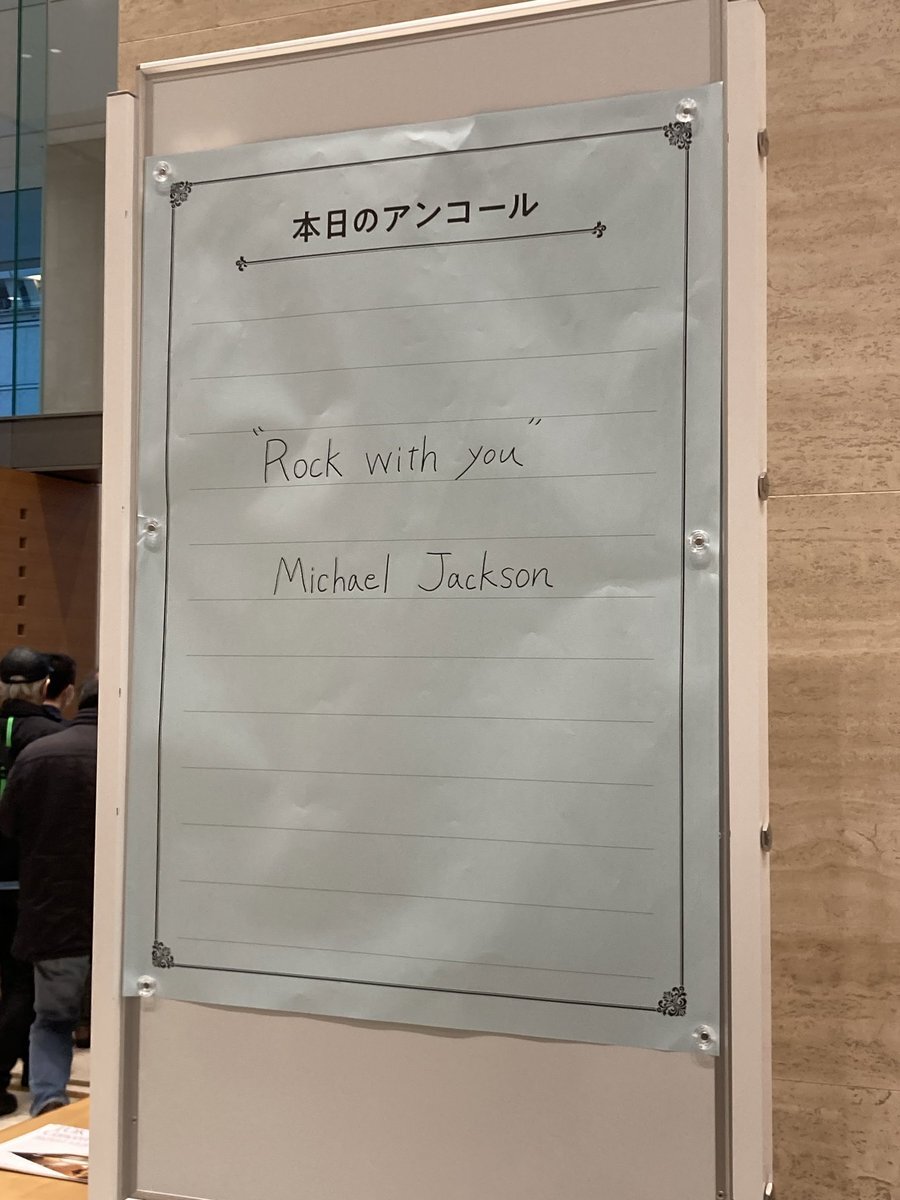 本日のアンコール
"Rock with you"
Michael Jackson